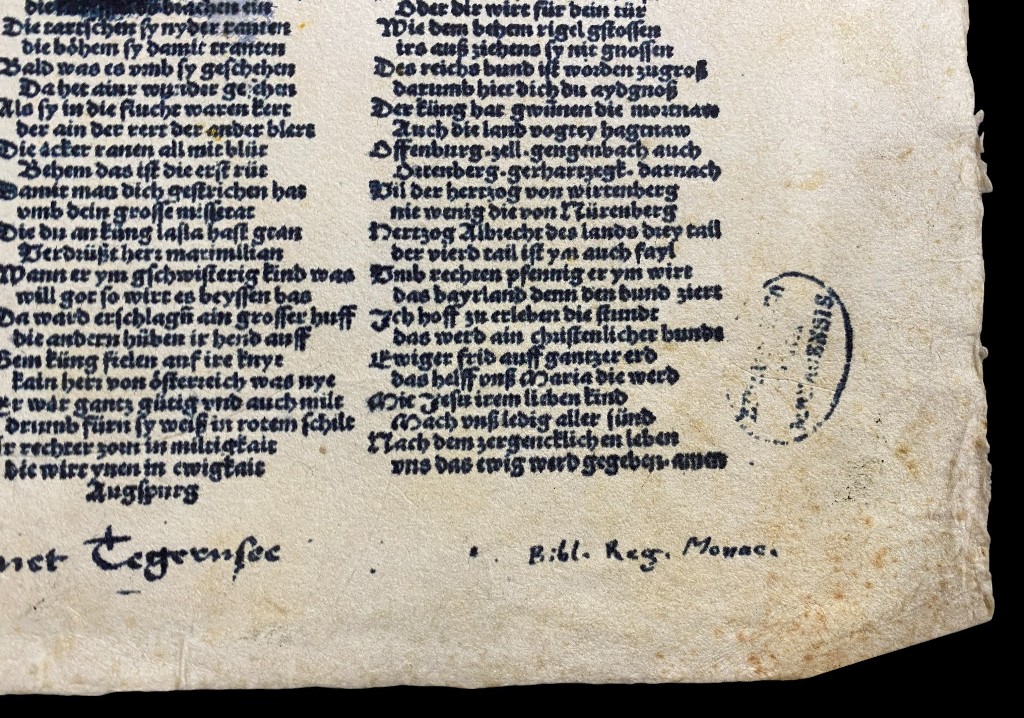 die brachen ein
Die tartschen sy nyder ranten
die böhem sy damit tranten
Bald was es vmb sy geschehen
Da het ainr wunder gesehen
Als sy in die flucht waren kert
der ain der rert der ander blert
Die äcker ranen all mit blůt
Behem das ist die erst růt
Damit man dich gestrichen hat
vmb dein grosse missetat
Die du an küng lasla hast gtan
Verdrüßt herr maximilian
Wann er ym gschwisterig kind was
will got so wirt es beyssen bas
Da ward erschlagñ ain grosser huff
die andern hůben ir hend auff
Dem küng fielen auf ire knye
kain herr von österreich was nye
Er wår gantz gütig vnd auch milt
drumb fürn sy weiß in rotem schilt
Ir rechter zorn in miltigkait
die wirt ynen in ewigkait
Augspurg
Oder dir wirt für dein tür
Wie dem behem rigel gstossen
irs auß ziehens sy nit gnossen
Des reichs bund ist worden zugroß
darumb hiet dich du aydgnoß
Der küng hat gwunnen die mortnaw
Auch die land vogtey hagtnaw
Offenburg.zell.gengenbach auch
Ortenberg.gerhartzegk.darnach
Vil der hertzog von wirtenberg
nit wenig die von Nürenberg
Hertzog Albrecht des lands drey tail
der vierd tail ist ym auch fayl
Vmb rechten pfennig er ym wirt
das bayrland denn den bund ziert
Ich hoff zu erleben die stundt
das werd ain christenlicher bundt
Ewiger frid auff gantzer erd
das helff vnß Maria die werd
Mit Jesu irem lieben kind
Mach vnß ledig aller sünd
Nach dem zergencklichen leben
vns das ewig werd gegeben.amen
Tegernsee
Bibl. Reg. Monac.
MONACENSIS.